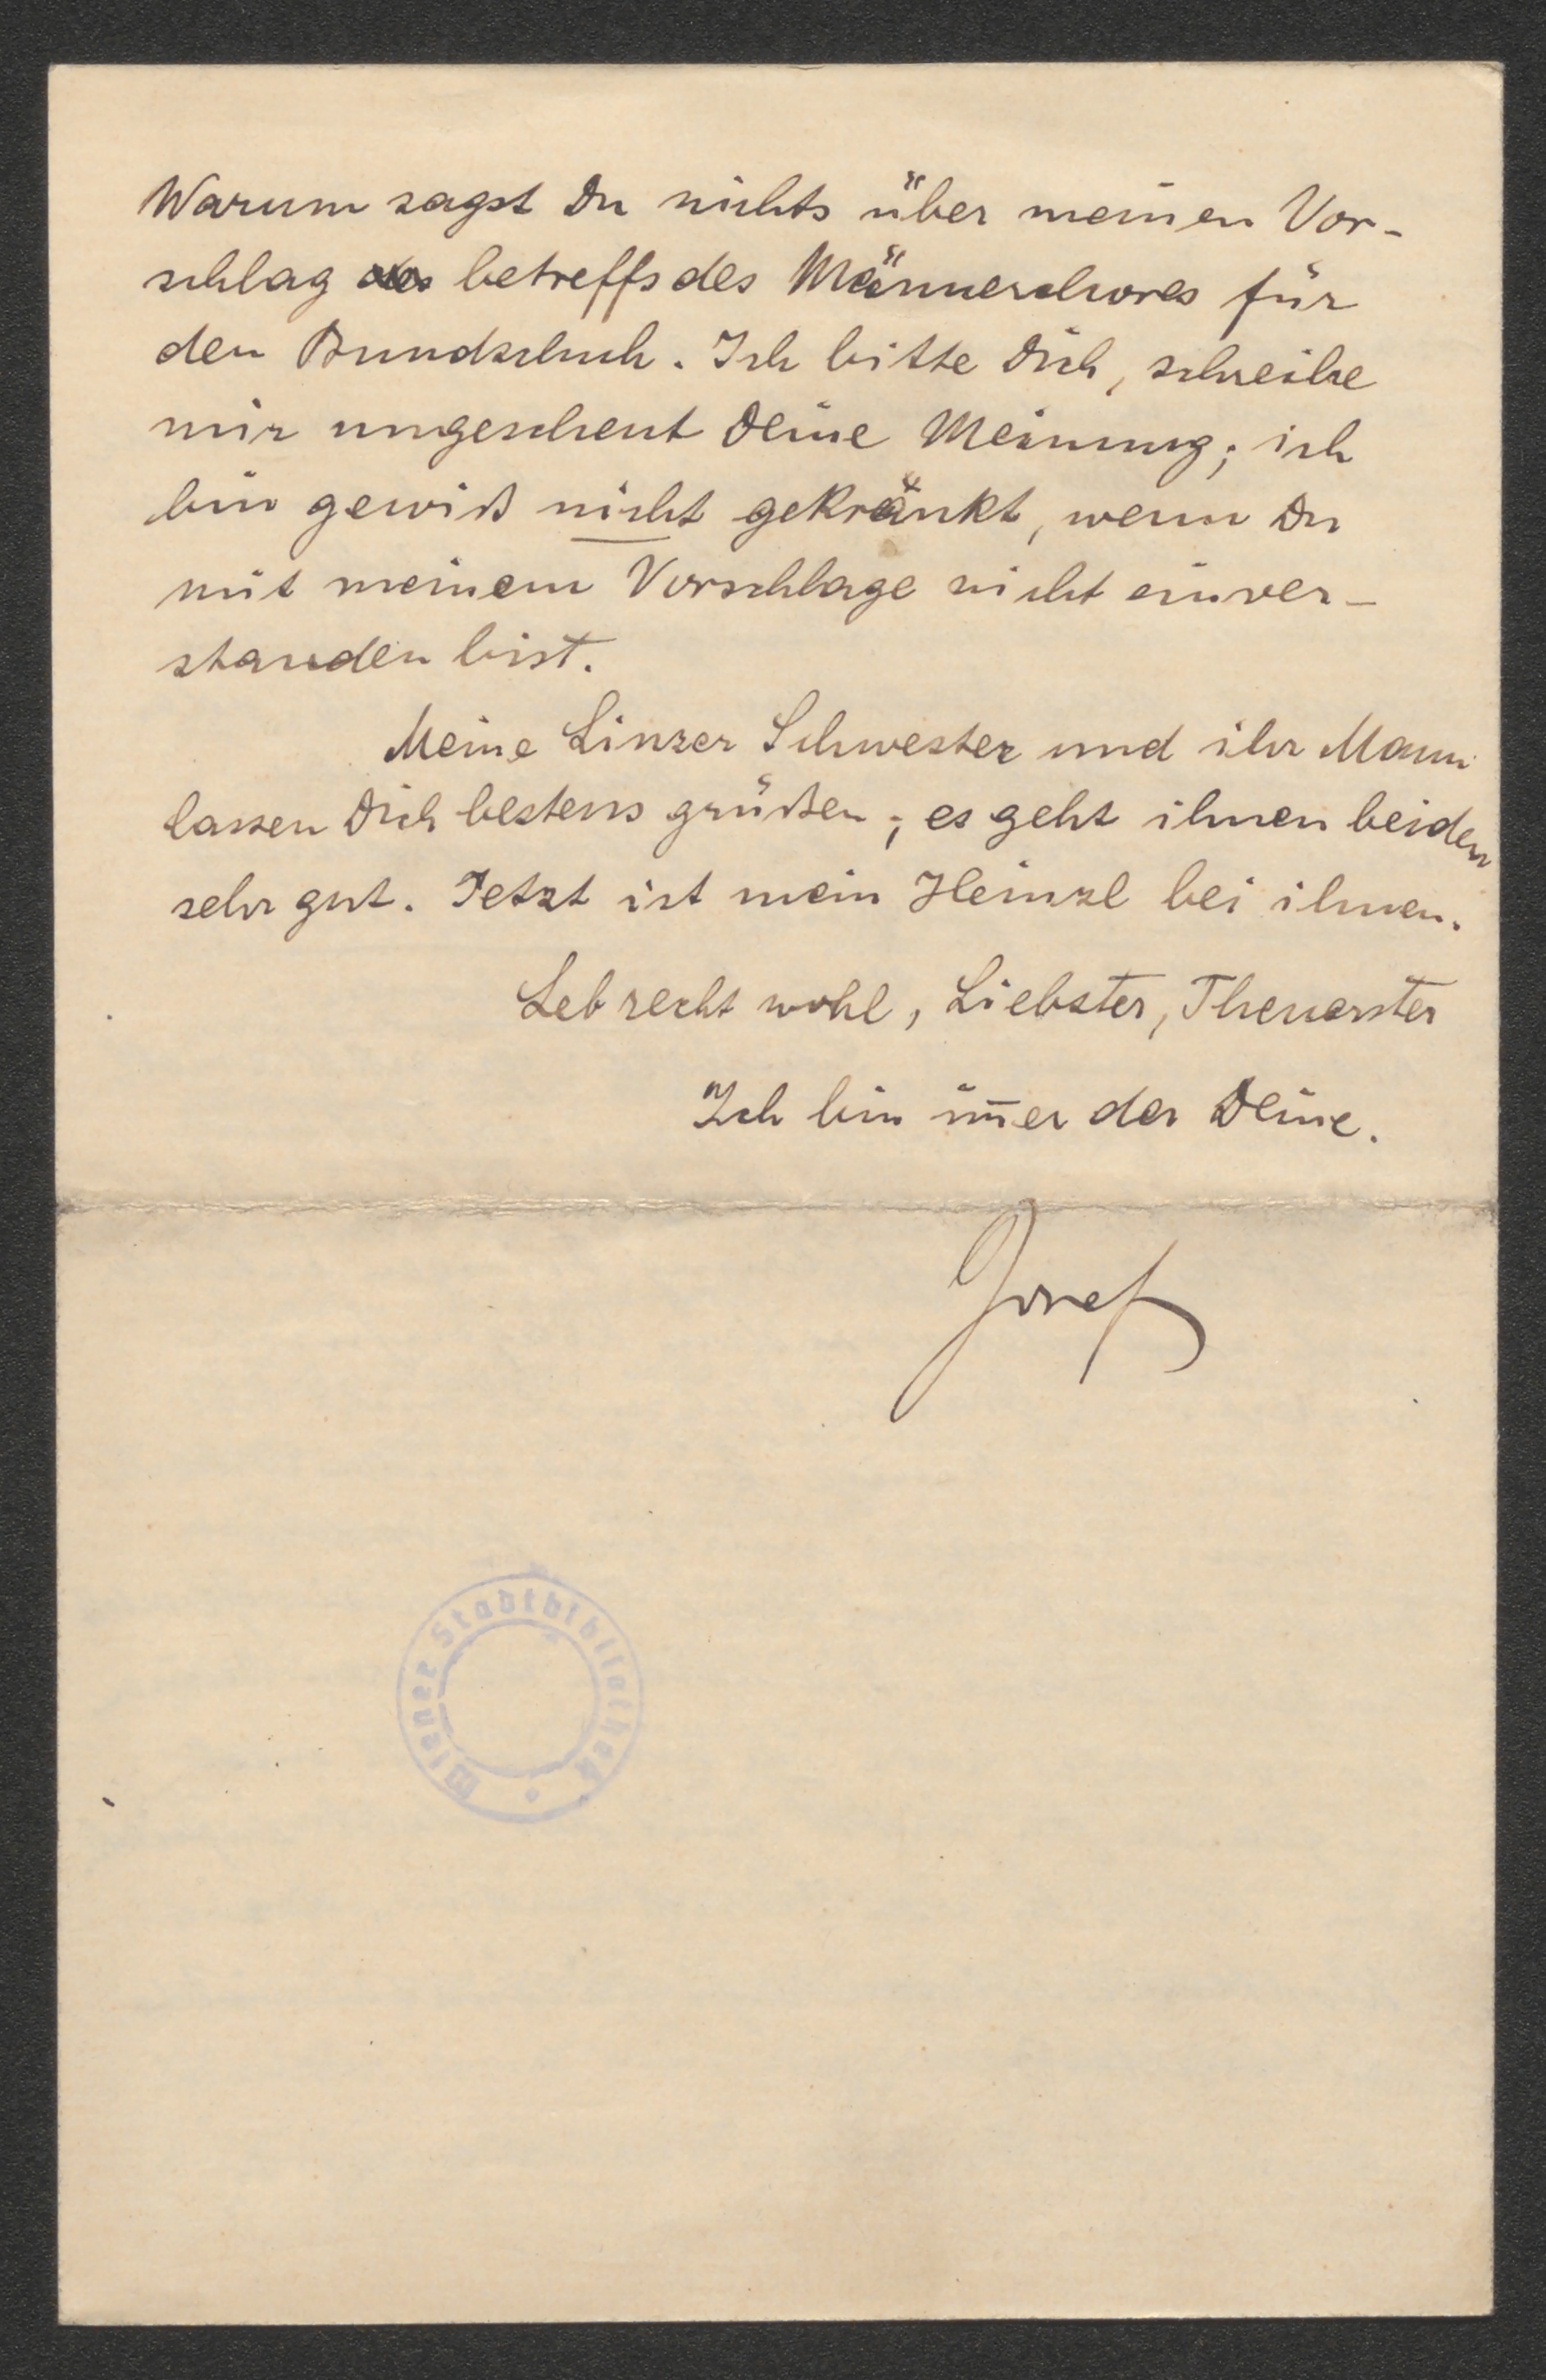 Warum sagst Du nichts über meinen Vor-
schlag des betreffs des Männerchores für
den Bundschuh. Ich bitte Dich, schreibe
mir ungescheut Deine Meinung; ich
bin gewiß nicht gekränkt, wenn Du
mit meinem Vorschlage nicht einver-
standen bist.
Meine Linzer Schwester und ihr Mann
lassen Dich bestens grüßen; es geht ihnen beiden
sehr gut. Jetzt ist mein Heinzl bei ihnen.
Leb recht wohl, Liebster, Theuerster
Ich bin im̅er der Deine.
Josef
Wiener Stadtbibliothek